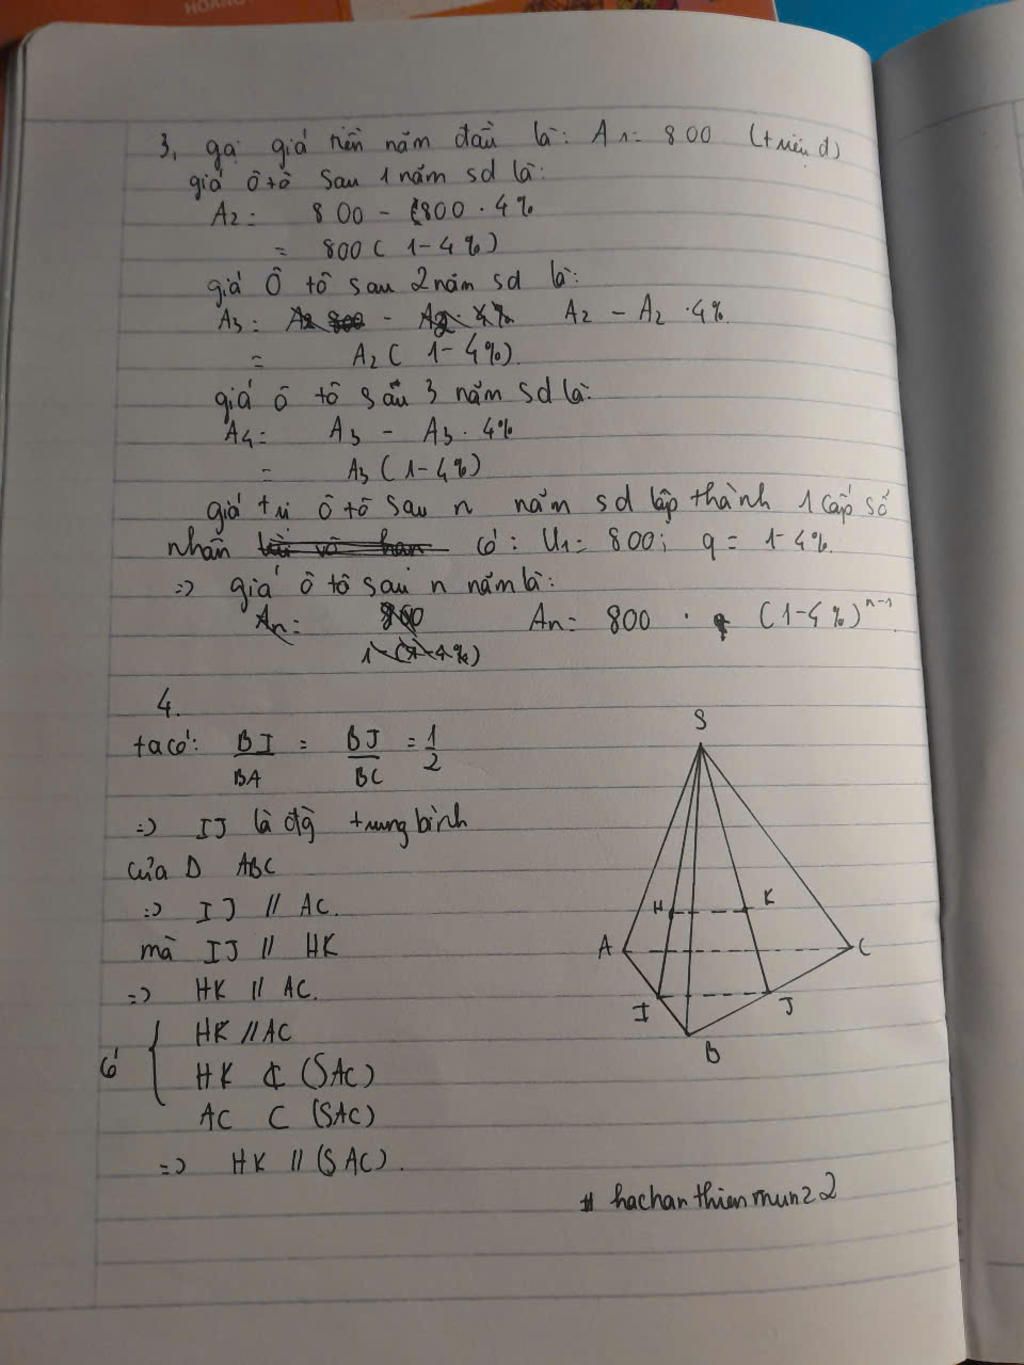 HOÀNG
3, gọi giá tiền năm đầu là: A1 = 800 (triệu đ)
giá ô tô sau 1 năm sd là:
A2 = 800 - 800 . 4%
= 800 ( 1 - 4%)
giá ô tô sau 2 năm sd là:
A3 = A2 - A2 . 4%.
= A2 ( 1 - 4%)
giá ô tô sau 3 năm sd là:
A4 = A3 - A3 . 4%
= A3 ( 1 - 4%)
giá trị ô tô sau n năm sd lập thành 1 cấp số
nhân có: U1 = 800; q = 1 - 4%.
=> giá ô tô sau n năm là:
An = 800 . (1 - 4%)^n-1
4.
ta có: BI/BA = BJ/BC = 1/2
=> IJ là đg trung bình
của Δ ABC
=> IJ // AC.
mà IJ // HK
=> HK // AC.
có { HK // AC
HK ⊄ (SAC)
AC ⊂ (SAC)
=> HK // (SAC).
S
H K
A C
I J
B
# hachanthienmunz2